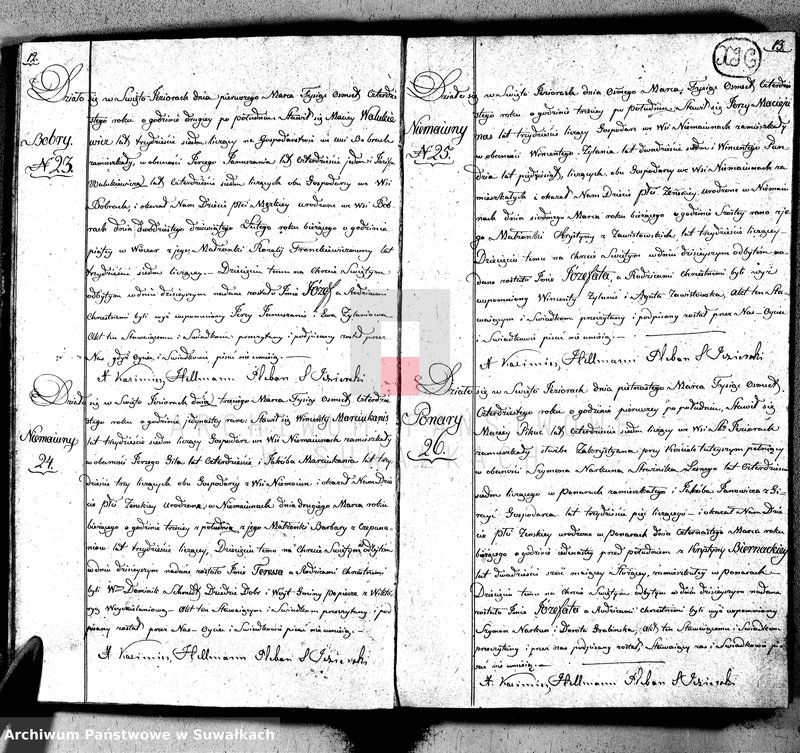 12.
Działo się w Święto-Jeziorach dnia pierwszego Marca Tysiąc Osmset Czterdzie-
stego roku o godzinie drugiey po południu. Stawił się Maciey Walukie-
wicz lat trzydzieści siedm liczący na Gospodarstwie we wsi Bobrach
Bobry.
N 23.
zamieszkały, w obecności Jerzego lat Czterdzieści jeden i Józefa
Walukiewicza lat Czterdzieści siedm liczących obu Gospodarzy we Wsi
Bobrach, i okazał Nam Dziecię płci Męzkiey urodzone we Wsi Bob-
rach dnia Dwódziestego dziewiątego Lutego roku bieżącego o godzinie
piątey w Wieczor z jego Małżonki Rozalij Fronckiewiczowny lat
trzydzieści siedm liczącey — Dziecięciu temu na Chrcie Świętym
odbytym w dniu dzisieyszym nadane zostało Imie Józef a Rodzicami
Chrzestnemi byli wyż wspomniony Jerzy i Ewa Zylaniowa
Akt ten Stawaiącemu i Swiadkom przeczytany i podpisany został przez
Nas gdyż Oyciec i Swiadkowie pisać nie umieją. —
X Kazimierz Hillmann Pleban S Jeziorski
Działo się w Święto Jeziorach dnia trzeciego Marca Tysiąc Osmset Czterdzie-
stego roku o godzinie jedynastey rano. Stawił się Wincenty Marciukanis
Niemawny
24.
lat trzydzieści siedm liczący Gospodarz we Wsi Niemawnach zamieszkały
w obecności Jerzego lat Czterdzieści i Jakóba Marciukania lat trzy-
dzieści trzy liczących obu Gospodarzy z Wsi Niemawn, i okazał Nam Dzie-
cię płci Żenskiey Urodzone, w Niemawnach dnia drugiego Marca roku
bieżącego o godzinie trzeciey z południa z jego Małżonki Barbary z Czapa-
niów lat trzydzieści liczącey, Dziecięciu temu na Chrcie Świętym odbytym
wdniu dzisieyszym nadane zostało Imie Teressa a Rodzicami Chrzestnemi
byli Wny Dominik Schmidt Dziedzic Dobr i Wóyt Gminy z Wikto-
ryą Akt ten Stawaiącym i Swiadkom przeczytany i pod-
pisany został przez Nas — Oyciec i Swiadkowie pisać nie umieją. —
X Kazimierz Hillmann Pleban S Jeziorski
13.
XIG
Działo się w Święto Jeziorach dnia Osmego Marca, Tysiąc Osmset Czterdzie-
stego roku o godzinie trzeciey po południu. Stawił się Jerzy Maciejo-
nas lat trzydzieści liczący Gospodarz we Wsi Niemawnach zamieszkały
Niemawny
N 25.
w obecności Wincentego Zylania lat dwadzieścia siedm i Wincentego
lat pięćdziesiąt, liczących obu Gospodarzy we Wsi Niemawnach za-
mieszkałych i okazał Nam Dziecię płci Żenskiey urodzone w Niemaw-
nach dnia siódmego Marca roku bieżącego o godzinie Szóstey rano z je-
go Małżonki Krystyny z Zawistowskich, lat trzydzieści liczącey
Dziecięciu temu na Chrcie Świętym wdniu dzisieyszym odbytym na-
dane zostało Imie Józefata, a Rodzicami Chrzestnemi byli wyż
wspomniony Wincenty Zylanis i Agata Zawistowska, Akt ten Sta-
waiącym i Swiadkom przeczytany i podpisany został przez Nas — Oyciec
i Swiadkowie pisać nie umieją. —
X Kazimierz Hillmann Pleban S Jeziorski
Działo się w Święto Jeziorach dnia piętnastego Marca Tysiąc Osmset
Czterdziestego roku o godzinie pierwszey po południu, Stawił się
Ponary
26.
Maciey lat Czterdzieści siedm liczący we Wsi Sto Jeziorach
zamieszkały służbe Zakrystyana przy Kościele tuteyszym pełniący
w obecności Szymona Narkuna Strażnika Lesnego lat Czterdzieści
siedm liczącego w Ponarach zamieszkałego i Jakóba Janowicza z
Gospodarza lat trzydzieści pięć liczącego — i okazał Nam Dzie-
cię płci Żenskiey urodzone w Ponarach dnia Czternastego Marca roku
bieżącego o godzinie przed południem z Krystyny Biernackiey
lat dwadzieścia sześć maiącey Służącey, zamieszkałey w Ponarach
Dziecięciu temu na Chrcie Świętym odbytym w dniu dzisieyszym nadane
zostało Imie Józefata a Rodzicami chrzestnemi byli wyż wspomniony
Szymon Narkun i Dorota Grabinska, Akt ten Stawaiącemu i Swiadkom
przeczytany i przez nas podpisany został, Stawaiący zaś i Swiadkowie pi-
sać nie umieją. —
X. Kazimierz Hillmann Pleban S Jeziorski
Archiwum Państwowe w Suwałkach